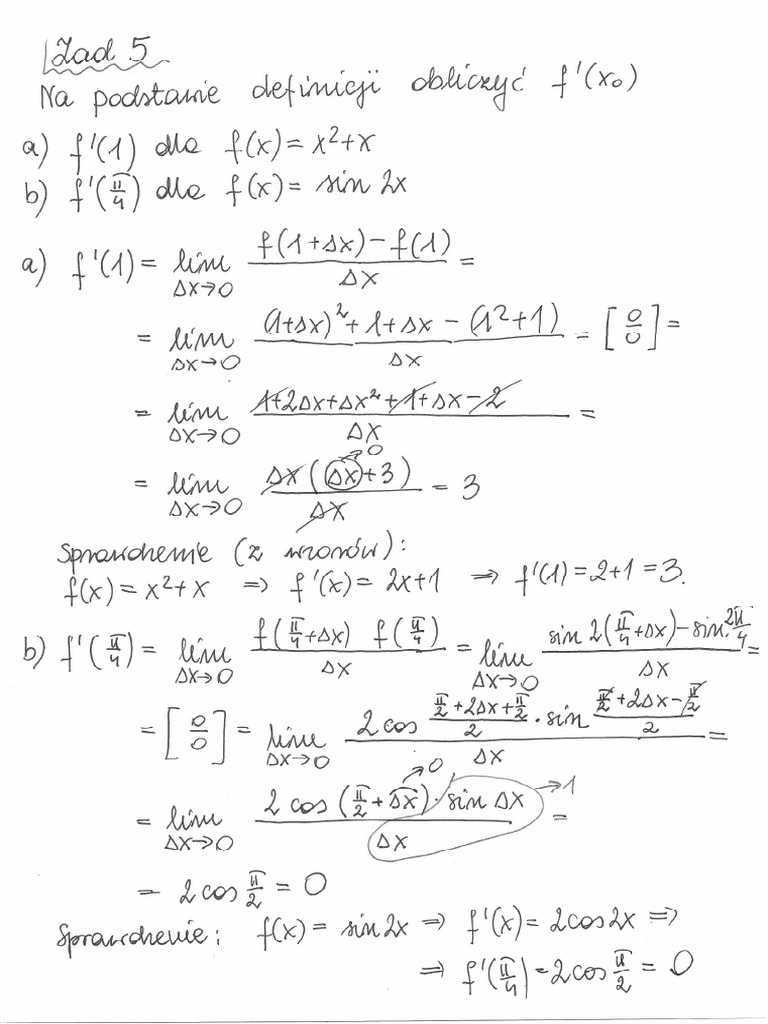 Zad. 5
Na podstawie definicji obliczyć f'(x₀)
a) f'(1) dla f(x) = x²+x
b) f'(π/4) dla f(x) = sin 2x
a) f'(1) = lim_{Δx→0} (f(1+Δx) − f(1))/Δx =
= lim_{Δx→0} ((1+Δx)² + 1+Δx − (1²+1))/Δx = [0/0] =
= lim_{Δx→0} (1+2Δx+Δx²+1+Δx−2)/Δx =
= lim_{Δx→0} Δx(Δx+3)/Δx = 3 →0
Sprawdzenie (z wzorów):
f(x) = x²+x ⇒ f'(x) = 2x+1 ⇒ f'(1) = 2+1 = 3.
b) f'(π/4) = lim_{Δx→0} (f(π/4+Δx) f(π/4))/Δx = lim_{Δx→0} (sin 2(π/4+Δx) − sin 2π/4)/Δx =
= [0/0] = lim_{Δx→0} (2 cos (π/2+2Δx+π/2)/2 · sin (π/2+2Δx−π/2)/2)/Δx =
= lim_{Δx→0} (2 cos (π/2+Δx) · sin Δx)/Δx = →0 →1
= 2 cos π/2 = 0
Sprawdzenie: f(x) = sin 2x ⇒ f'(x) = 2 cos 2x ⇒
⇒ f'(π/4) = 2 cos π/2 = 0